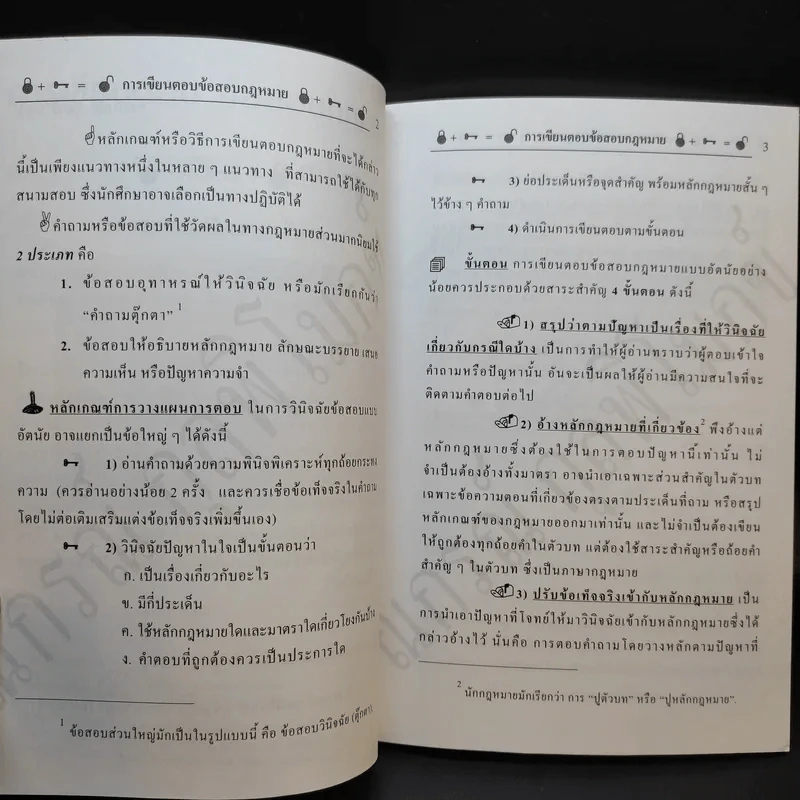 + = การเขียนตอบข้อสอบกฎหมาย + =
2
หลักเกณฑ์หรือวิธีการเขียนตอบกฎหมายที่จะได้กล่าว
นี้เป็นเพียงแนวทางหนึ่งในหลาย ๆ แนวทาง ที่สามารถใช้ได้กับทุก
สนามสอบ ซึ่งนักศึกษาอาจเลือกเป็นทางปฏิบัติได้
คำถามหรือข้อสอบที่ใช้วัดผลในทางกฎหมายส่วนมากนิยมใช้
2 ประเภท คือ
1. ข้อสอบอุทาหรณ์ให้วินิจฉัย หรือมักเรียกกันว่า
“คำถามตุ๊กตา” 1
2. ข้อสอบให้อธิบายหลักกฎหมาย ลักษณะบรรยาย เสนอ
ความเห็น หรือปัญหาความจำ
หลักเกณฑ์การวางแผนการตอบ ในการวินิจฉัยข้อสอบแบบ
อัตนัย อาจแยกเป็นข้อใหญ่ ๆ ได้ดังนี้
1) อ่านคำถามด้วยความพินิจพิเคราะห์ทุกถ้อยกระทง
ความ (ควรอ่านอย่างน้อย 2 ครั้ง และควรเชื่อข้อเท็จจริงในคำถาม
โดยไม่ต่อเติมเสริมแต่งข้อเท็จจริงเพิ่มขึ้นเอง)
2) วินิจฉัยปัญหาในใจเป็นขั้นตอนว่า
ก. เป็นเรื่องเกี่ยวกับอะไร
ข. มีกี่ประเด็น
ค. ใช้หลักกฎหมายใดและมาตราใดเกี่ยวโยงกันบ้าง
ง. คำตอบที่ถูกต้องควรเป็นประการใด
1 ข้อสอบส่วนใหญ่มักเป็นในรูปแบบนี้ คือ ข้อสอบวินิจฉัย (ตุ๊กตา).
+ = การเขียนตอบข้อสอบกฎหมาย + =
3
3) ย่อประเด็นหรือจุดสำคัญ พร้อมหลักกฎหมายสั้น ๆ
ไว้ข้าง ๆ คำถาม
4) ดำเนินการเขียนตอบตามขั้นตอน
ขั้นตอน การเขียนตอบข้อสอบกฎหมายแบบอัตนัยอย่าง
น้อยควรประกอบด้วยสาระสำคัญ 4 ขั้นตอน ดังนี้
1) สรุปว่าตามปัญหาเป็นเรื่องที่ให้วินิจฉัย
เกี่ยวกับกรณีใดบ้าง เป็นการทำให้ผู้อ่านทราบว่าผู้ตอบเข้าใจ
คำถามหรือปัญหานั้น อันจะเป็นผลให้ผู้อ่านมีความสนใจที่จะ
ติดตามคำตอบต่อไป
2) อ้างหลักกฎหมายที่เกี่ยวข้อง2 พึงอ้างแต่
หลักกฎหมายซึ่งต้องใช้ในการตอบปัญหานี้เท่านั้น ไม่
จำเป็นต้องอ้างทั้งมาตรา อาจนำเอาเฉพาะส่วนสำคัญในตัวบท
เฉพาะข้อความตอนที่เกี่ยวข้องตรงตามประเด็นที่ถาม หรือสรุป
หลักเกณฑ์ของกฎหมายออกมาเท่านั้น และไม่จำเป็นต้องเขียน
ให้ถูกต้องทุกถ้อยคำในตัวบท แต่ต้องใช้สาระสำคัญหรือถ้อยคำ
สำคัญ ๆ ในตัวบท ซึ่งเป็นภาษากฎหมาย
3) ปรับข้อเท็จจริงเข้ากับหลักกฎหมาย เป็น
การนำเอาปัญหาที่โจทย์ให้มาวินิจฉัยเข้ากับหลักกฎหมายซึ่งได้
กล่าวอ้างไว้ นั่นคือ การตอบคำถามโดยวางหลักตามปัญหาที่
2 นักกฎหมายมักเรียกว่า การ “ปูตัวบท” หรือ “ปูหลักกฎหมาย”.